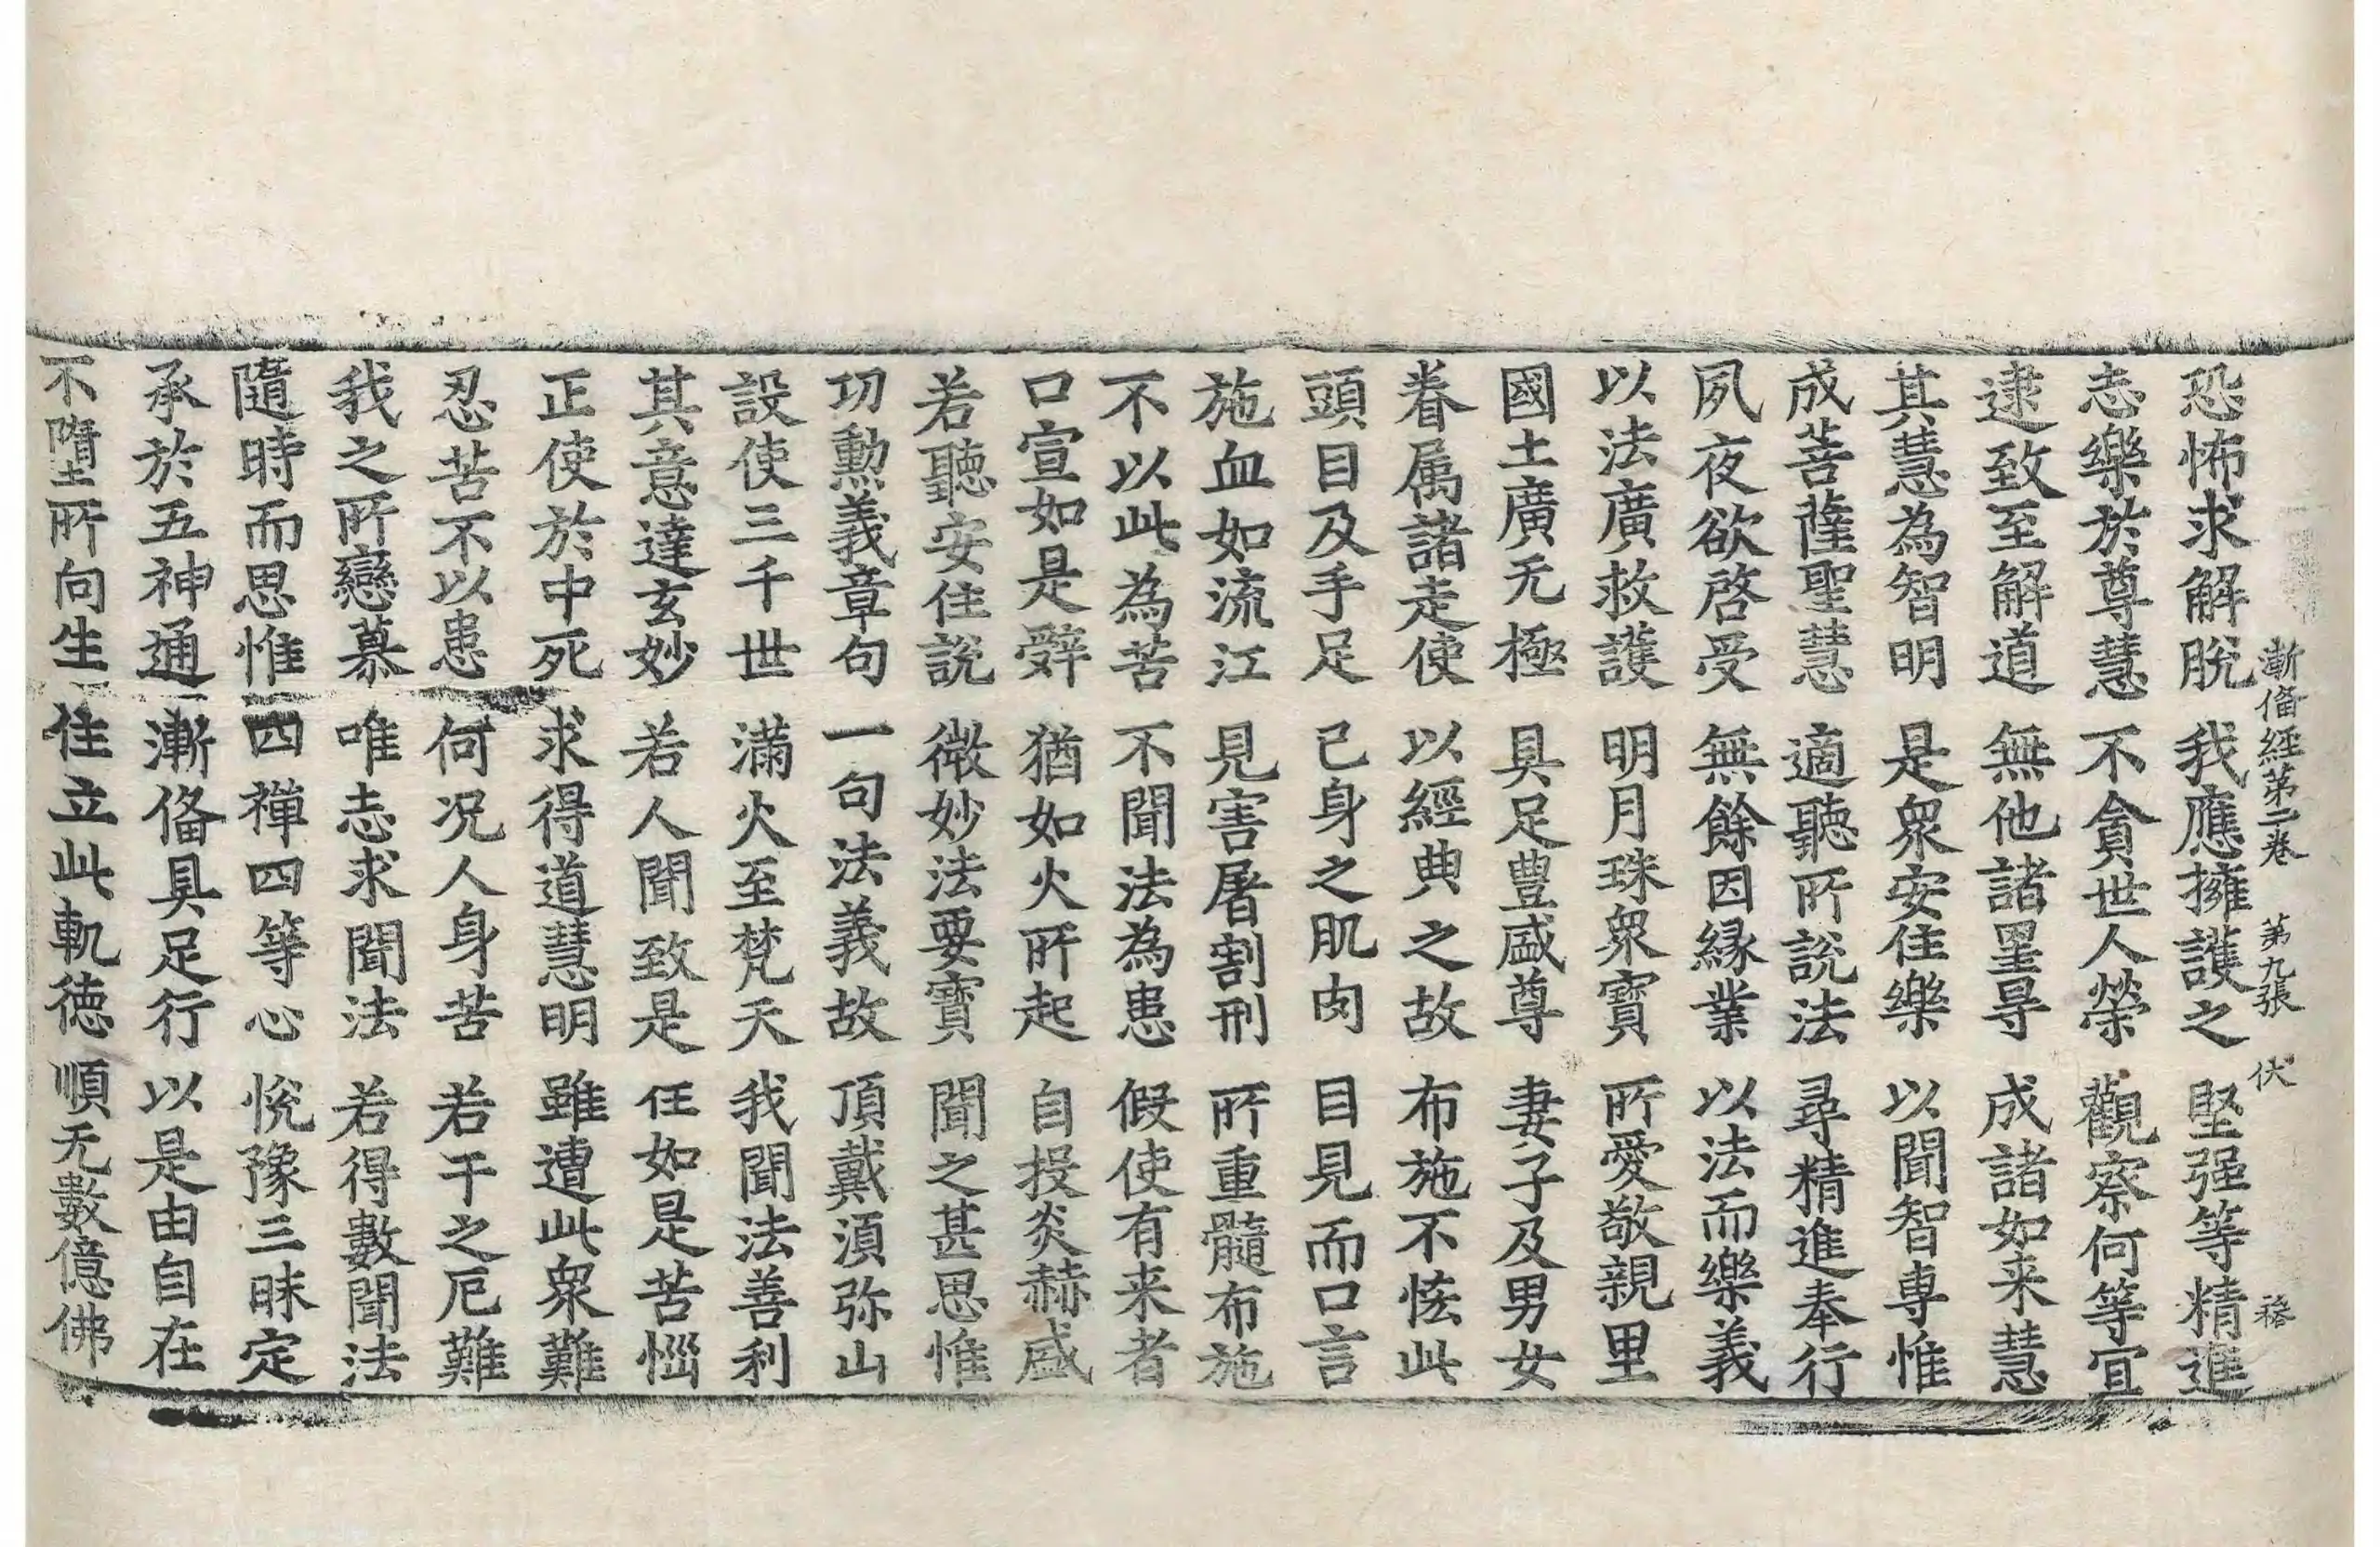 漸俻經第二卷　第九張　伏　𥡴
恐怖求解脫　我應擁護之　堅强等精進
志樂於尊慧　不貪世人榮　觀察何等冝
逮致至解道　無他諸罣㝵　成諸如来慧
其慧為智明　是衆安住樂　以聞智專惟
成菩薩聖慧　適聽所說法　尋精進奉行
夙夜欲啓受　無餘因緣業　以法而樂義
以法廣救護　明月珠衆寶　所愛敬親里
國土廣无極　具足豊盛尊　妻子及男女
眷属諸走使　以經典之故　布施不恡此
頭目及手足　己身之肌肉　目見而口言
施血如流江　見害屠割刑　所重髓布施
不以此為苦　不聞法為患　假使有来者
口宣如是辤　猶如火所起　自投炎赫盛
若聽安住說　微妙法要寶　聞之甚思惟
功勲義章句　一句法義故　頂戴湏弥山
設使三千世　滿火至梵天　我聞法善利
其意達玄妙　若人聞致是　任如是苦惱
正使於中死　求得道慧明　雖遭此衆難
忍苦不以患　何况人身苦　若干之厄難
我之所戀慕　唯志求聞法　若得數聞法
隨時而思惟　四禪四等心　恱豫三昧定
承於五神通　漸俻具足行　以是由自在
不墮所向生　住立此軌徳　順无數億佛